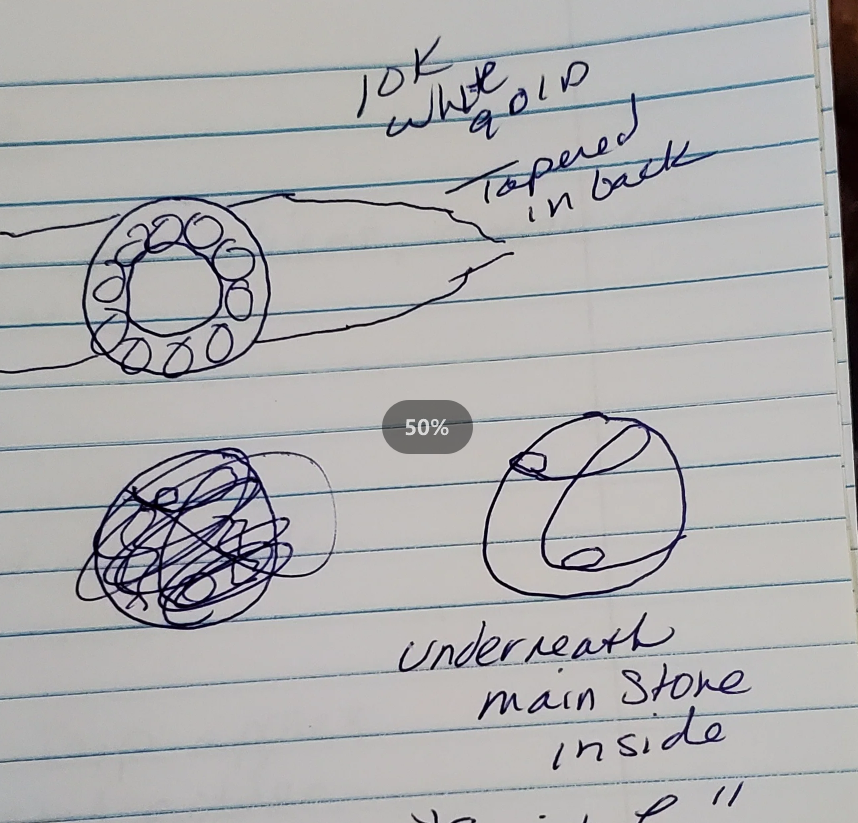 10K
white
gold
Tapered
in back
50%
underneath
main stone
inside